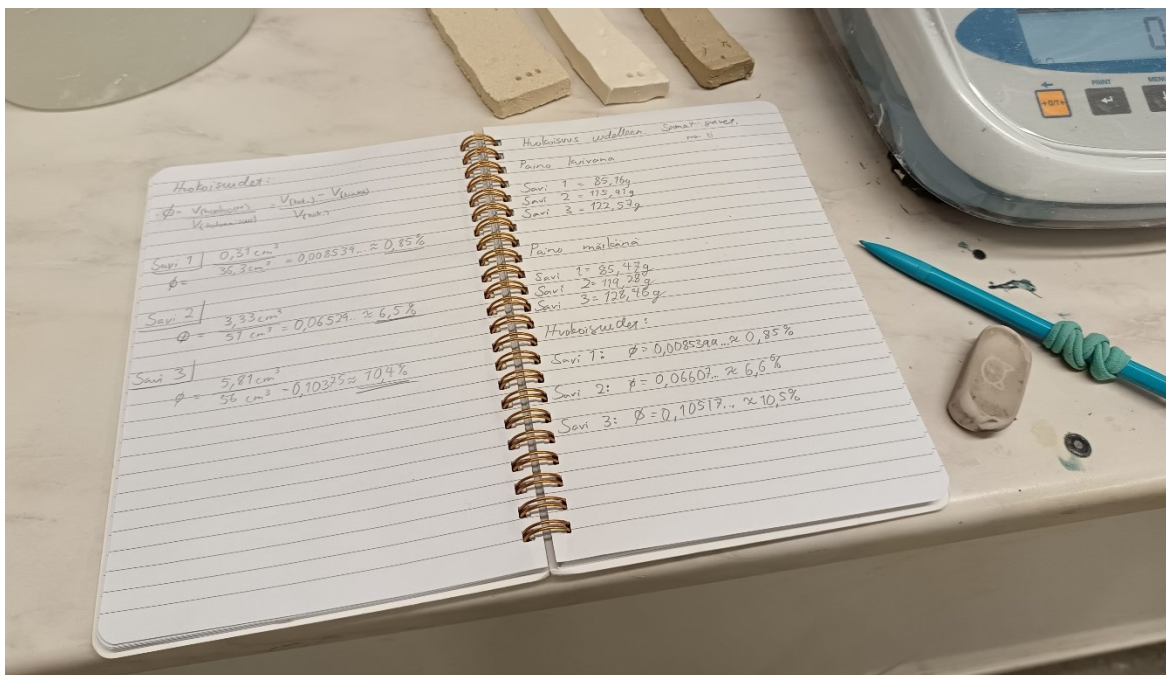 Huokoisuudet:
ϕ = V(huokonen) / V(kokonais) = V(kok.) - V(kuiva) / V(kok.)
Savi 1
ϕ = 0,31 cm³ / 36,3 cm³ = 0,008539... ≈ 0,85%
Savi 2
ϕ = 3,33 cm³ / 51 cm³ = 0,06529... ≈ 6,5%
Savi 3
ϕ = 5,81 cm³ / 56 cm³ = 0,10375 ≈ 10,4%
Huokoisuus uudelleen samat savet.
Paino kuivana
Savi 1 = 85,16g
Savi 2 = 115,91g
Savi 3 = 122,57g
Paino märkänä
Savi 1= 85,47g
Savi 2= 119,28g
Savi 3= 128,46g
Huokoisuudet:
Savi 1: ϕ=0,0085399... ≈ 0,85%
Savi 2: ϕ= 0,06607... ≈ 6,6%
Savi 3: ϕ=0,10517... ≈ 10,5%
0
PRINT